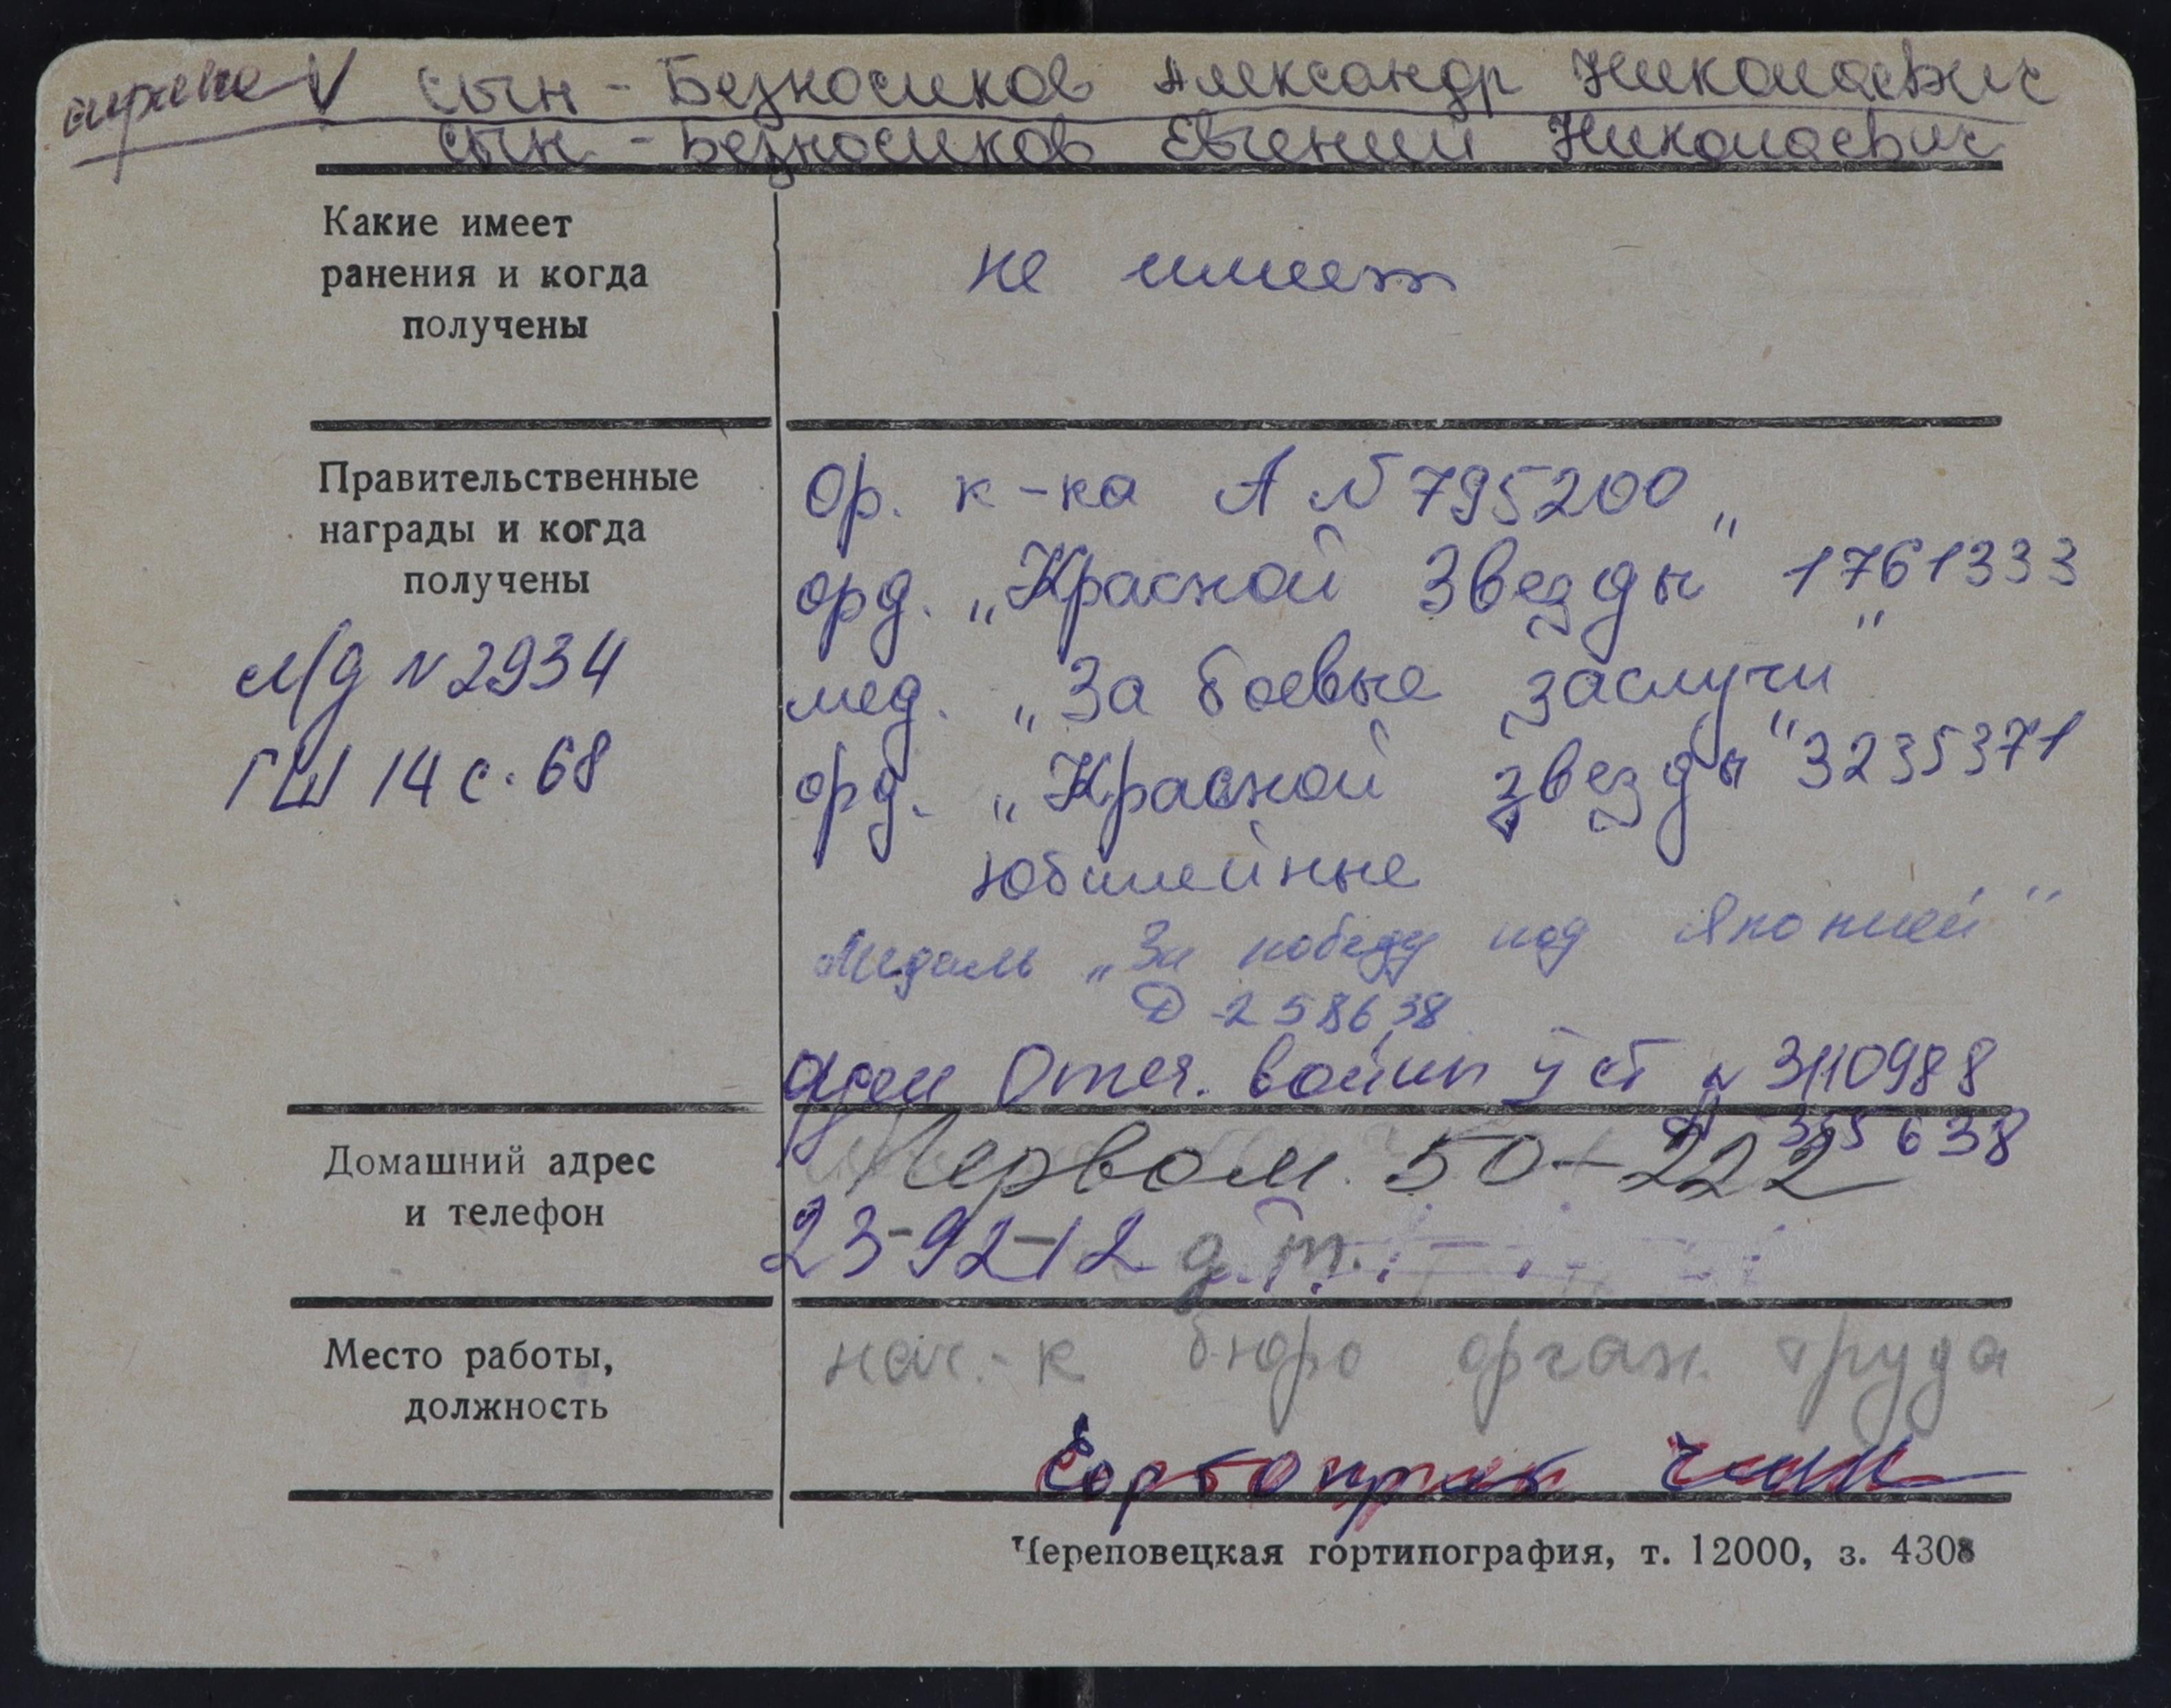 V сын - Безносиков Александр Николаевич
сын - Безносиков Евгений Николаевич
Какие имеет
ранения и когда
получены
не имеет
Правительственные
награды и когда
получены
М/д N 2934
ГШ 14 с. 68
Ор. к-ка А № 795200
орд. „Красной Звезды" 1761333
мед. „За боевые заслуги"
орд. „Красной звезды" 3235371
юбилейные
Медаль „За победу над Японией"
Д-258638
орден Отеч. войны ст N 3110988
638
Домашний адрес
и телефон
Первом. 50-222
23-92-12 д.т.
Место работы,
должность
нач.-к бюро орган. труда
Череповецкая гортипография, т. 12000, з. 4308